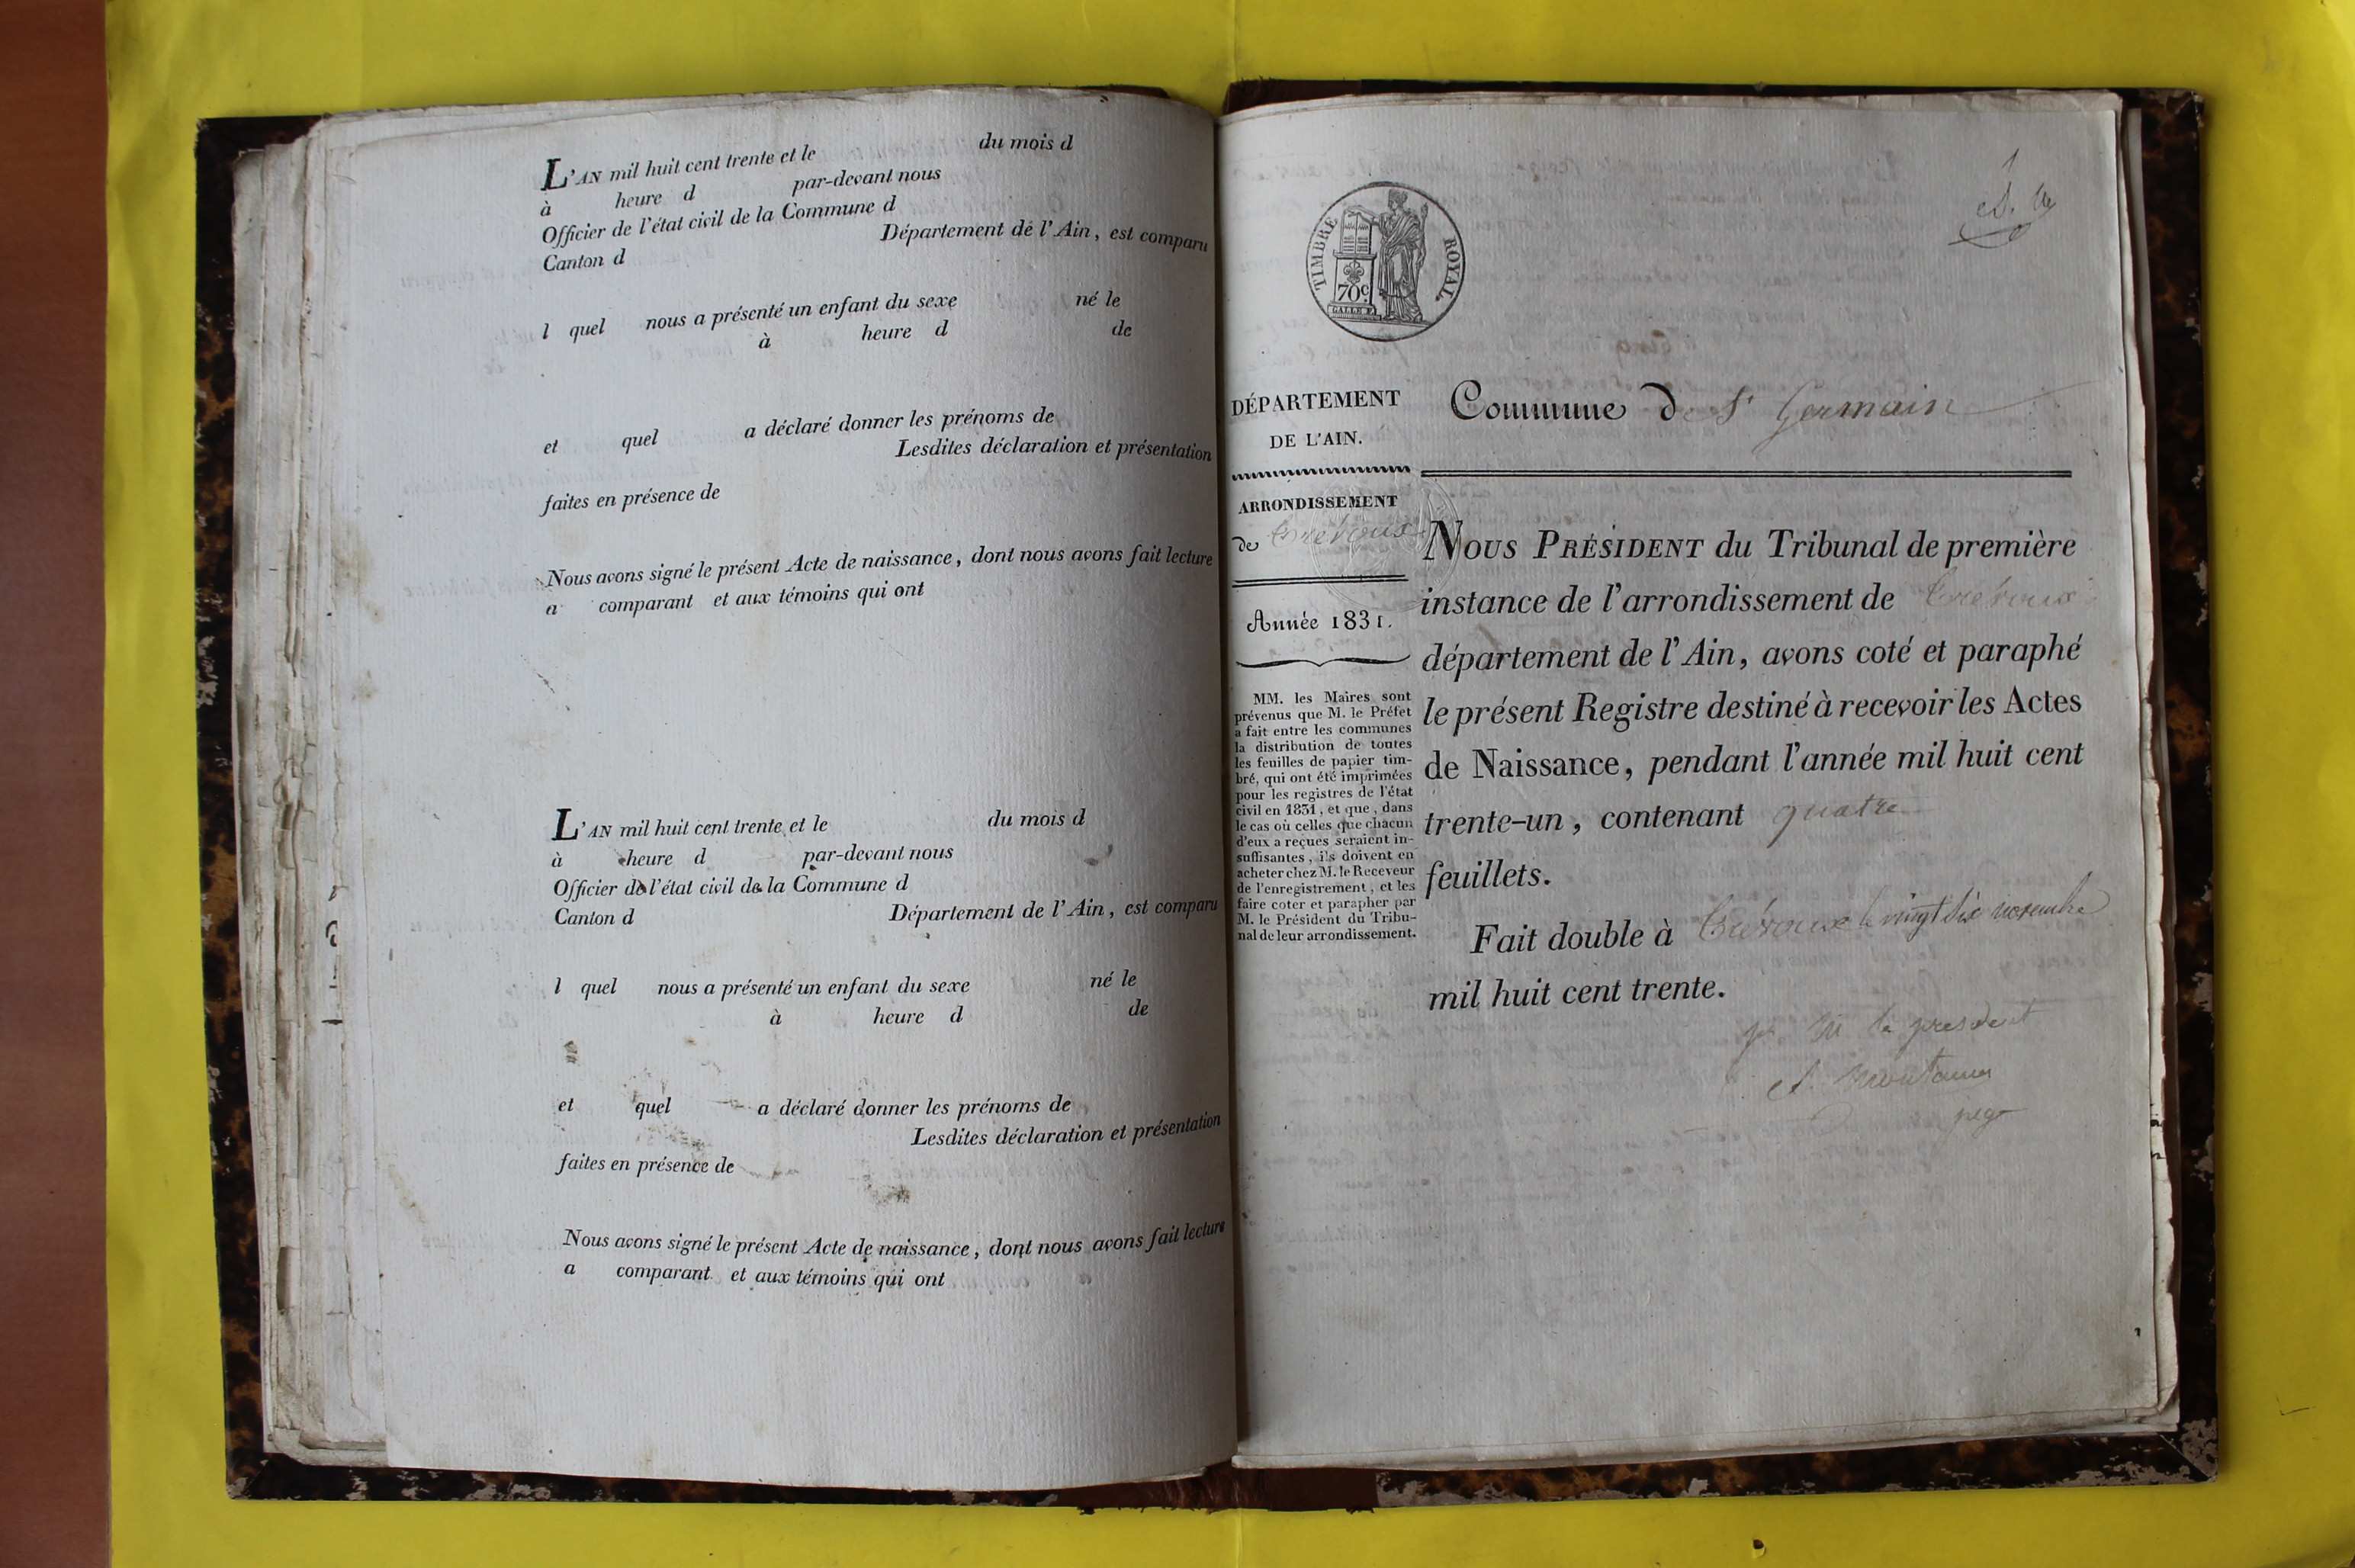 L'AN mil huit cent trente et le du mois d
à heure d par-devant nous
Officier de l'état civil de la Commune d
Canton d Département de l'Ain, est comparu
l quel nous a présenté un enfant du sexe né le
à heure d de
et quel a déclaré donner les prénoms de
Lesdites déclaration et présentation
faites en présence de
Nous avons signé le présent Acte de naissance, dont nous avons fait lecture
a comparant et aux témoins qui ont
L'AN mil huit cent trente et le du mois d
à heure d par-devant nous
Officier de l'état civil de la Commune d
Canton d Département de l'Ain, est comparu
l quel nous a présenté un enfant du sexe né le
à heure d de
et quel a déclaré donner les prénoms de
Lesdites déclaration et présentation
faites en présence de
Nous avons signé le présent Acte de naissance, dont nous avons fait lecture
a comparant et aux témoins qui ont
1
TIMBRE ROYAL
70c
DÉPARTEMENT
DE L'AIN.
ARRONDISSEMENT
de Trévoux
Année 1831.
MM. les Maires sont
prévenus que M. le Préfet
a fait entre les communes
la distribution de toutes
les feuilles de papier tim-
bré, qui ont été imprimées
pour les registres de l'état
civil en 1831, et que, dans
le cas où celles que chacun
d'eux a reçues seraient in-
suffisantes, ils doivent en
acheter chez M. le Receveur
de l'enregistrement, et les
faire coter et parapher par
M. le Président du Tribu-
nal de leur arrondissement.
Commune de St Germain
NOUS PRÉSIDENT du Tribunal de première
instance de l'arrondissement de Trévoux
département de l'Ain, avons coté et paraphé
le présent Registre destiné à recevoir les Actes
de Naissance, pendant l'année mil huit cent
trente-un, contenant quatre
feuillets.
Fait double à Trévoux le vingt six novembre
mil huit cent trente.
le president